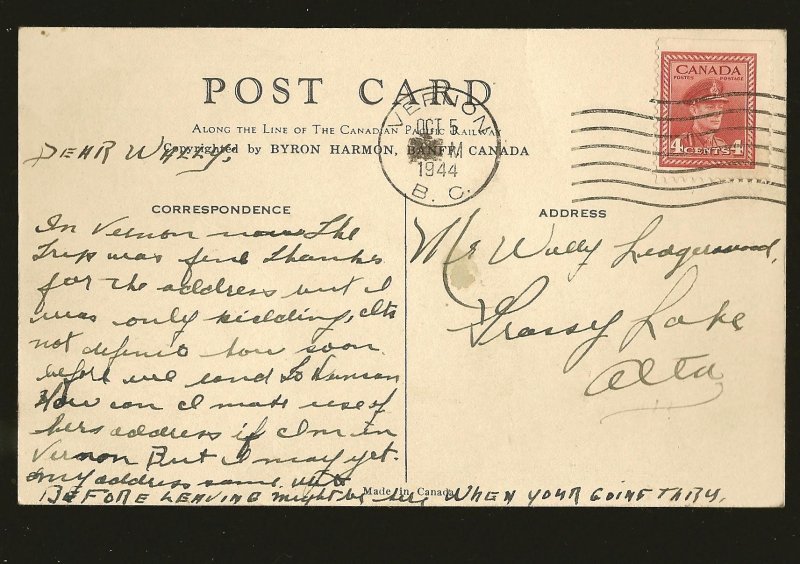 POST CARD
ALONG THE LINE OF THE CANADIAN PACIFIC RAILWAY
Copyrighted by BYRON HARMON, BANFF, CANADA
VERNON
OCT 5
M
1944
B. C.
CANADA
POSTES POSTAGE
4 CENTS 4
DEAR WALLY,
CORRESPONDENCE
In Vernon now The
Trip was fine thanks
for the address but I
was only kidding, its
not definite how soon
before we
How can I make use of
hers address if Im in
Vernon But I may yet.
my address same
BEFORE LEAVING might be WHEN YOUR GOING THRU.
ADDRESS
Mr Wally Ledgerwood,
Grassy Lake
Alta
Made in Canada